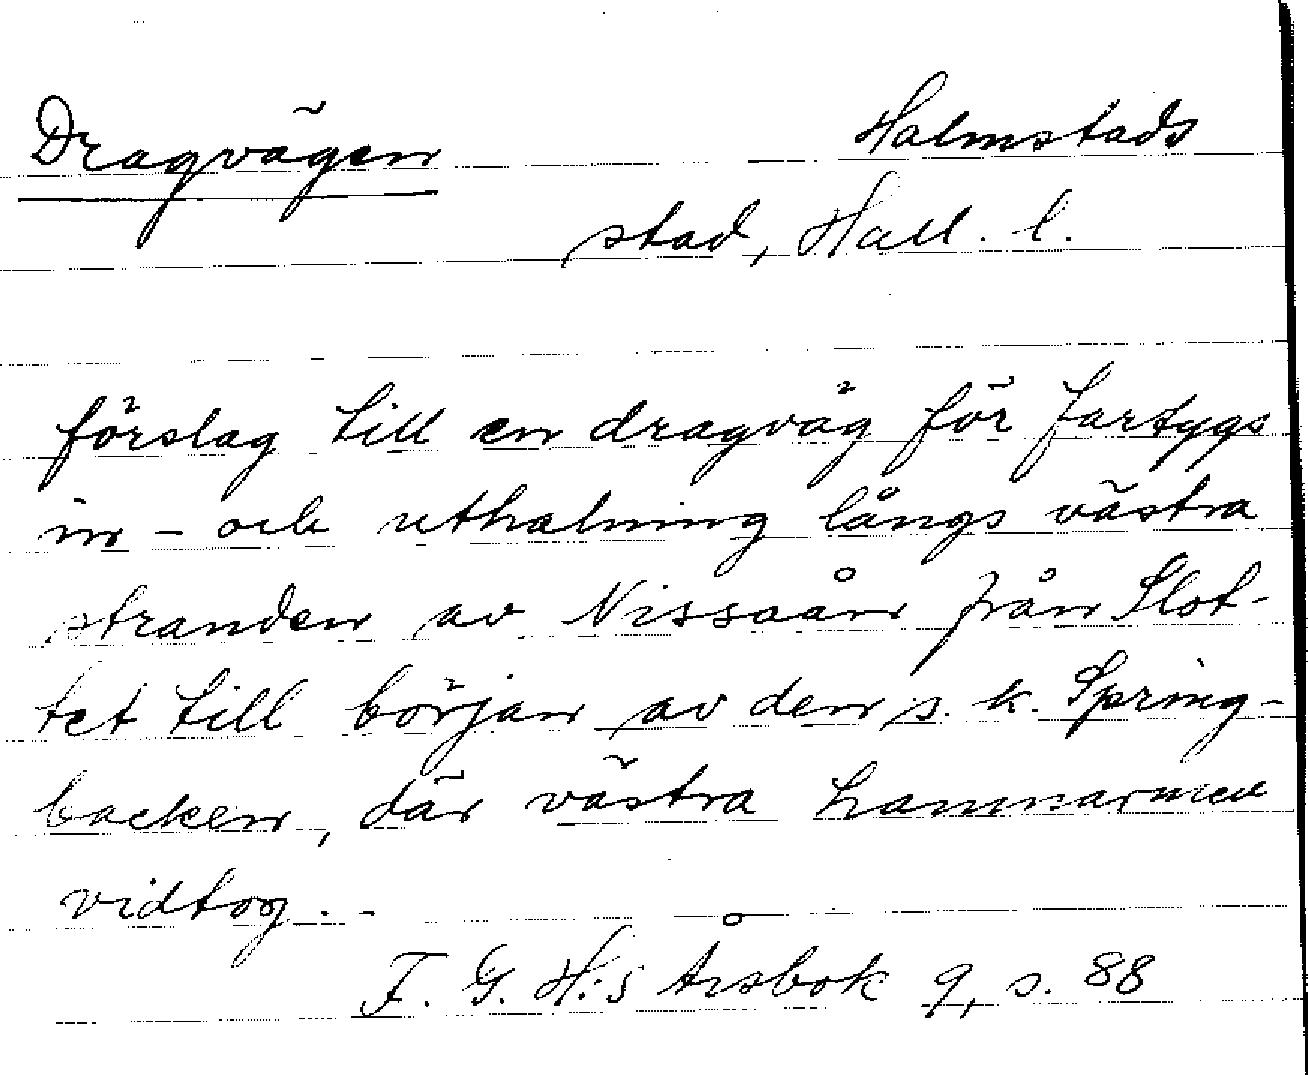 Dragvägen
Halmstads
stad, Hall. l.
förslag till en dragväg för fartygs
in - och uthalning långs västra
stranden av Nissaån från Slot-
tet till början av den s. k. Spring-
backen, där västra hamnarmen
vidtog. -
F. G. H:s Årsbok 9, s. 88